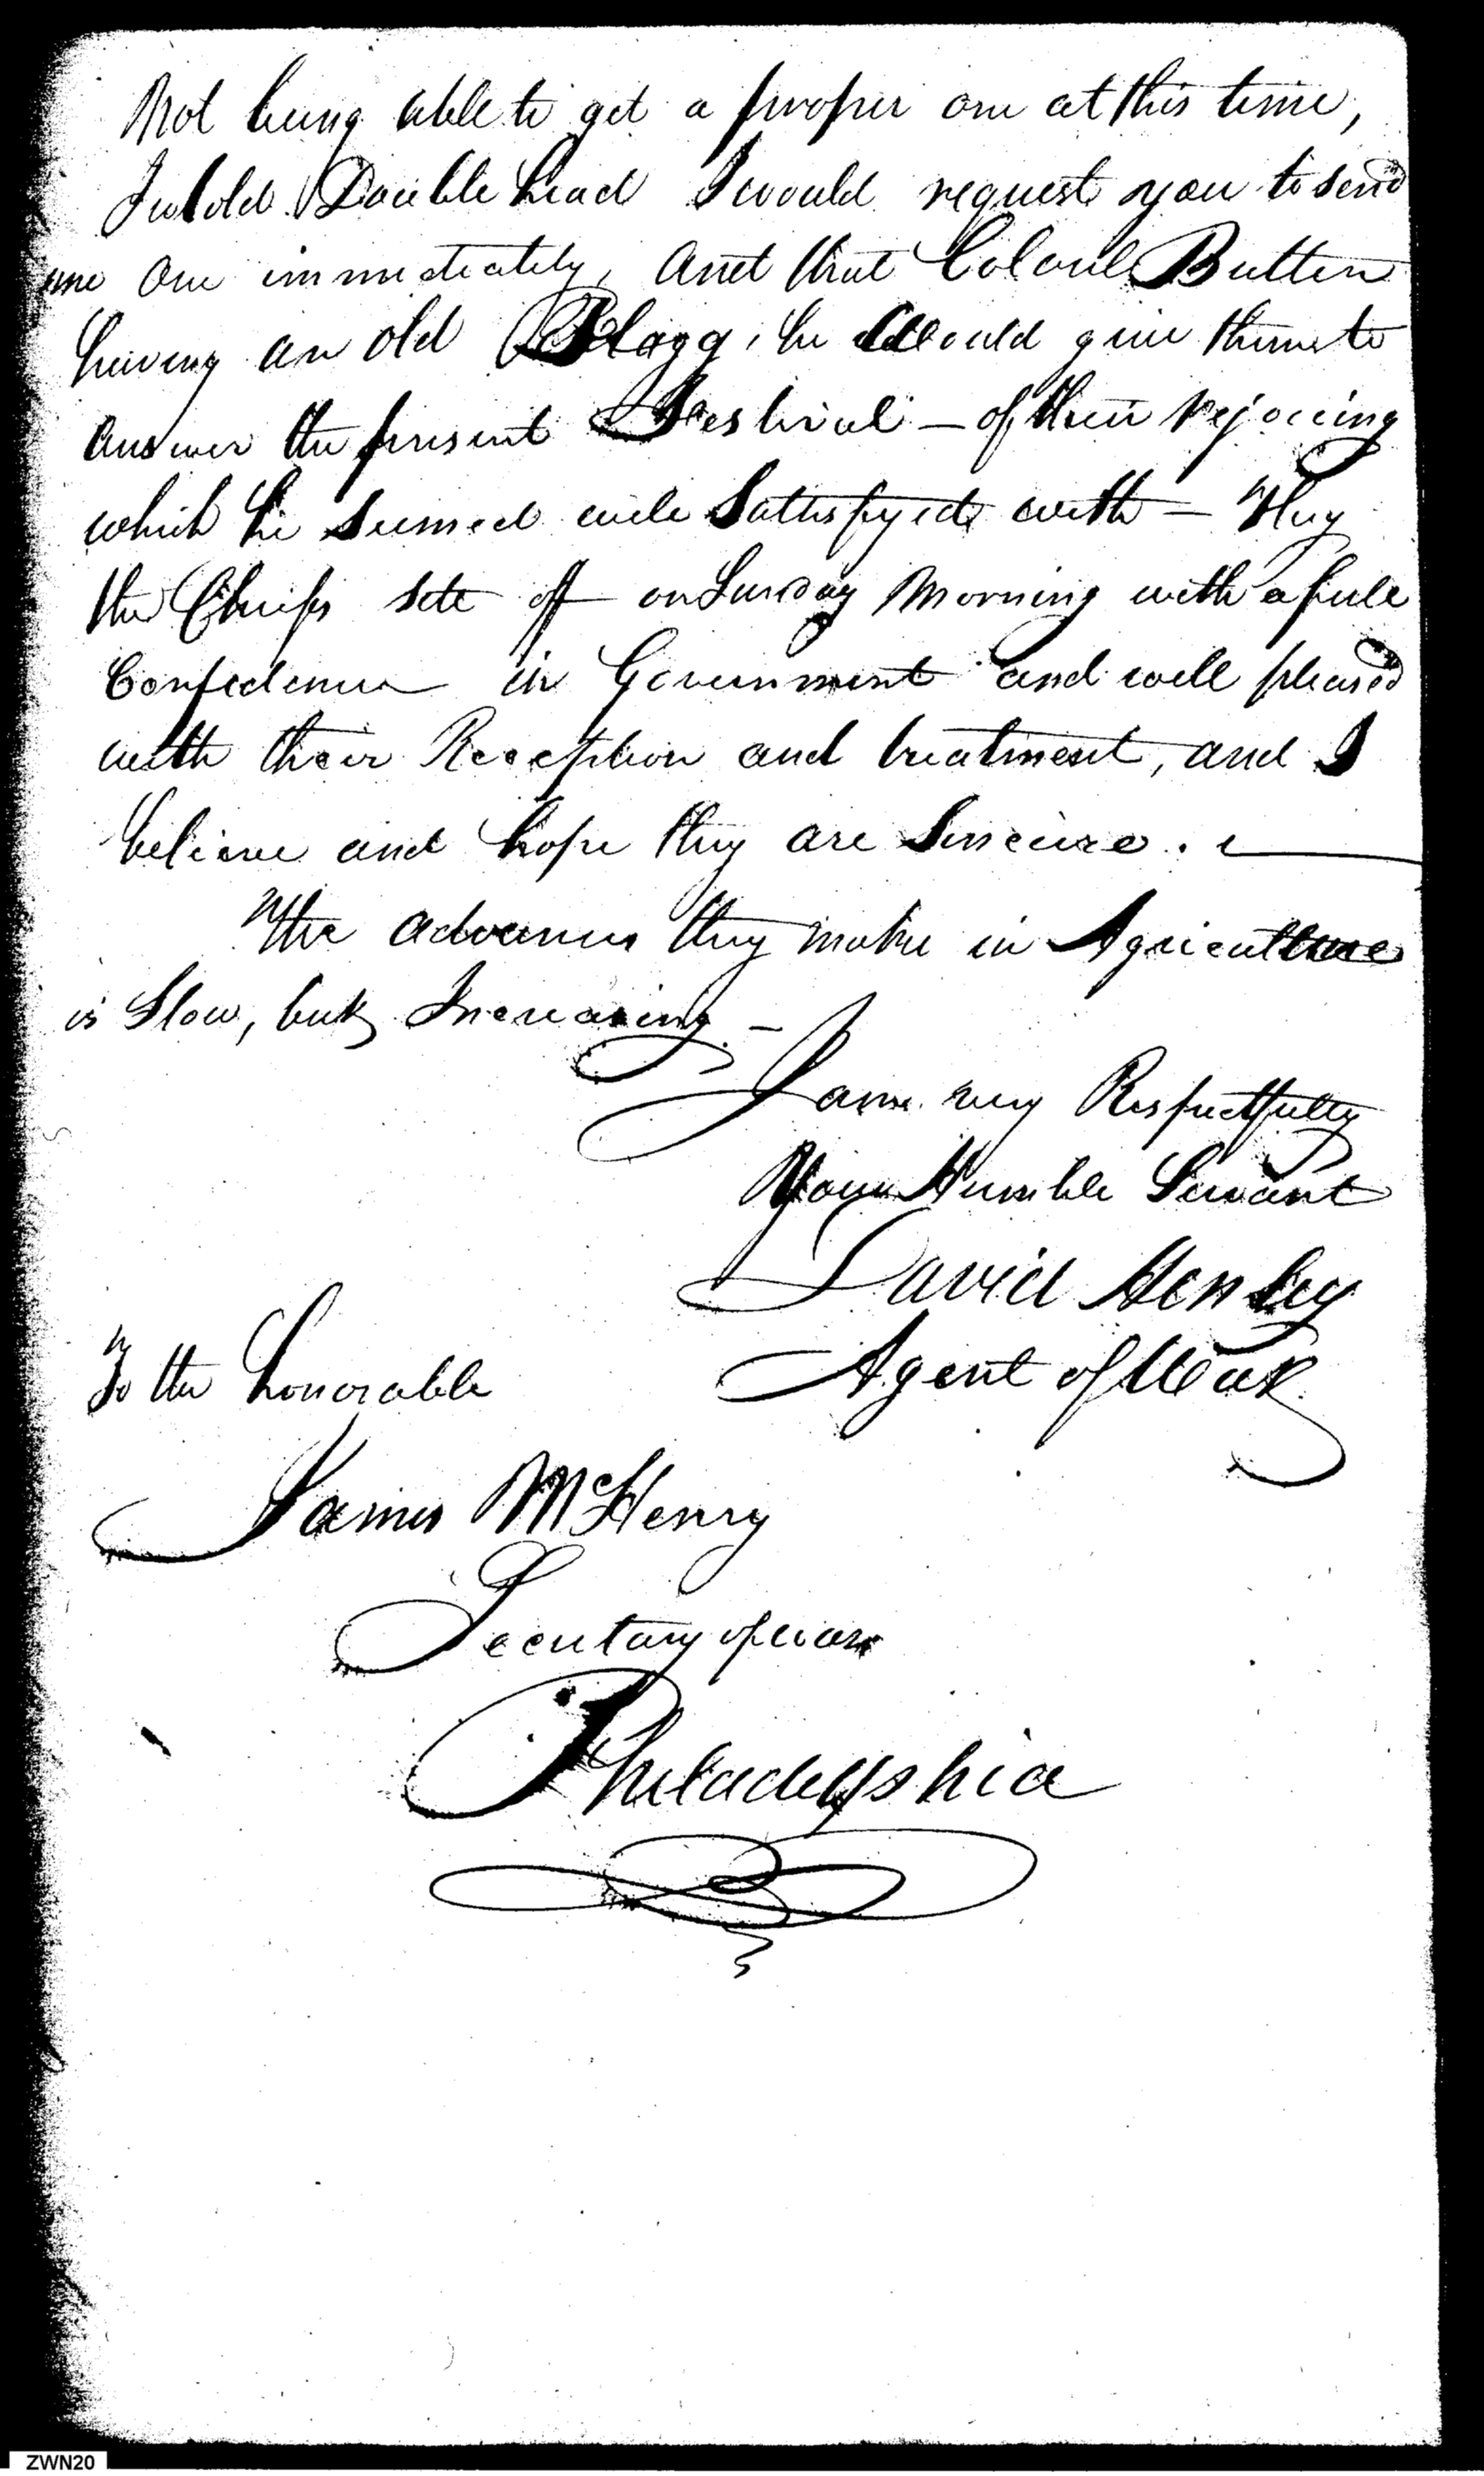 Not being able to get a proper one at this time,
I told Double head I would request you to send
me one immediately, and that Colonel Butler
having an old Flagg, he should give them to
answer the present Festival — of their rejoicing
which he seemed well Sattisfyed with — They
the Chiefs sett off on Sunday Morning with a full
Confidence in Government and well pleased
with their Reception and treatment, and I
believe and hope they are Sinceire. —
The advances they make in Agriculture
is Slow, but Increasing —
I am very Respectfully
Your Humble Servant
David Henley
Agent of War
To the honorable
James McHenry
Secretary of war
Philadelphia
ZWN20